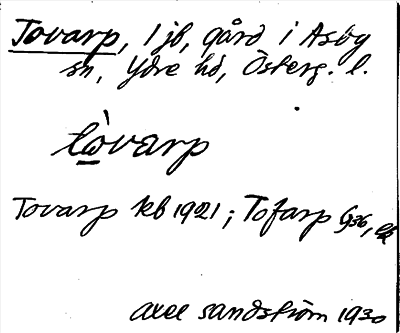 Tovarp, 1 jb, gård i Asby
sn, Ydre hd, Österg. l.
tòvarp
Tovarp kb 1921; Tofarp G36, ek
Axel Sandström 1930